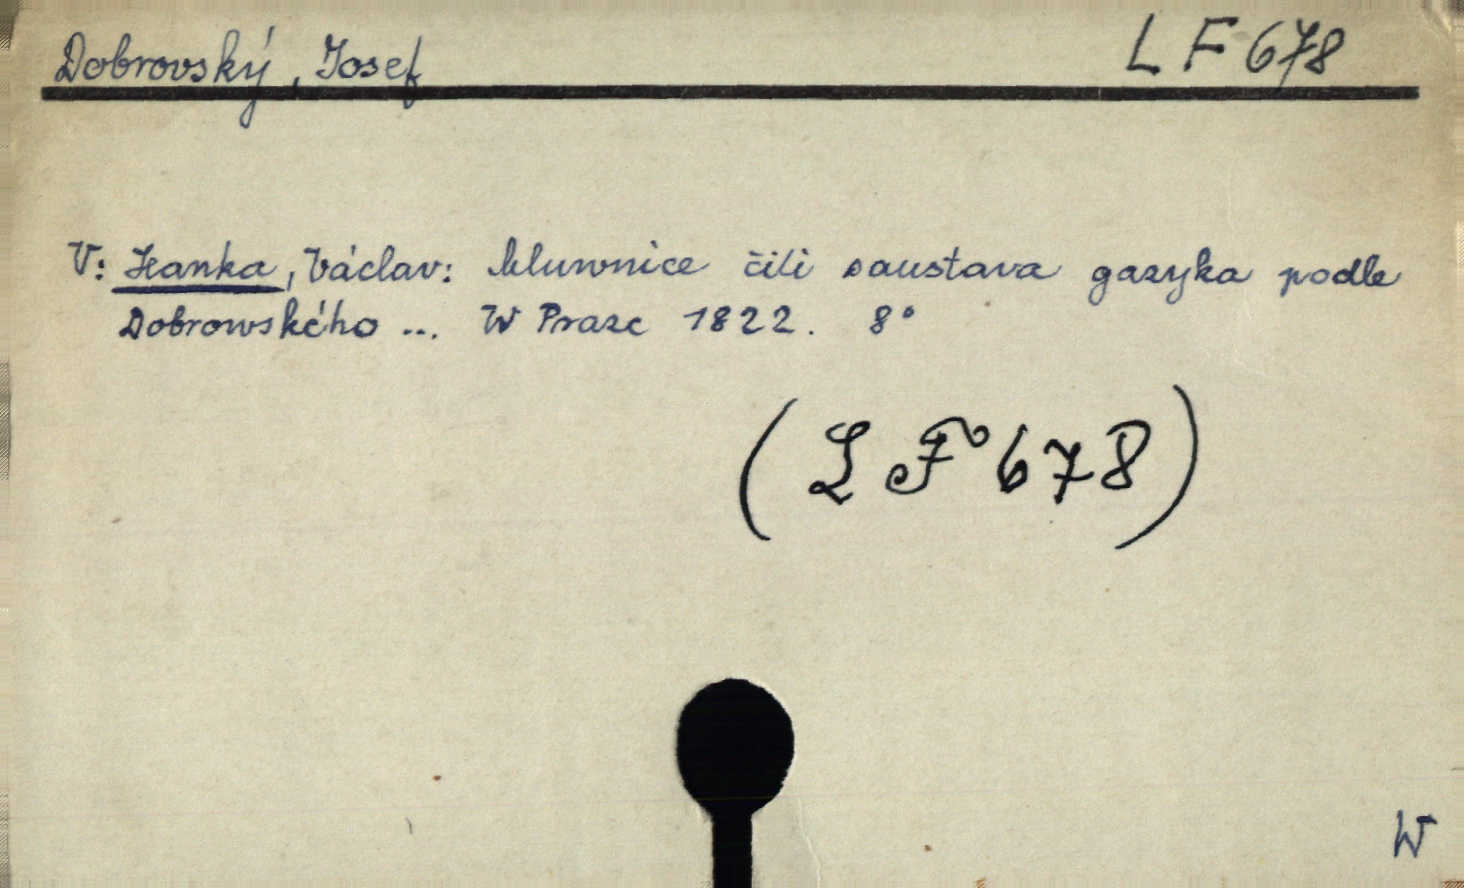 Dobrovský, Josef LF 678
V: Hanka, Václav: Mluwnice čili saustava gazyka podle
Dobrowského ... W Praze 1822. 8°
(LF 678)
W